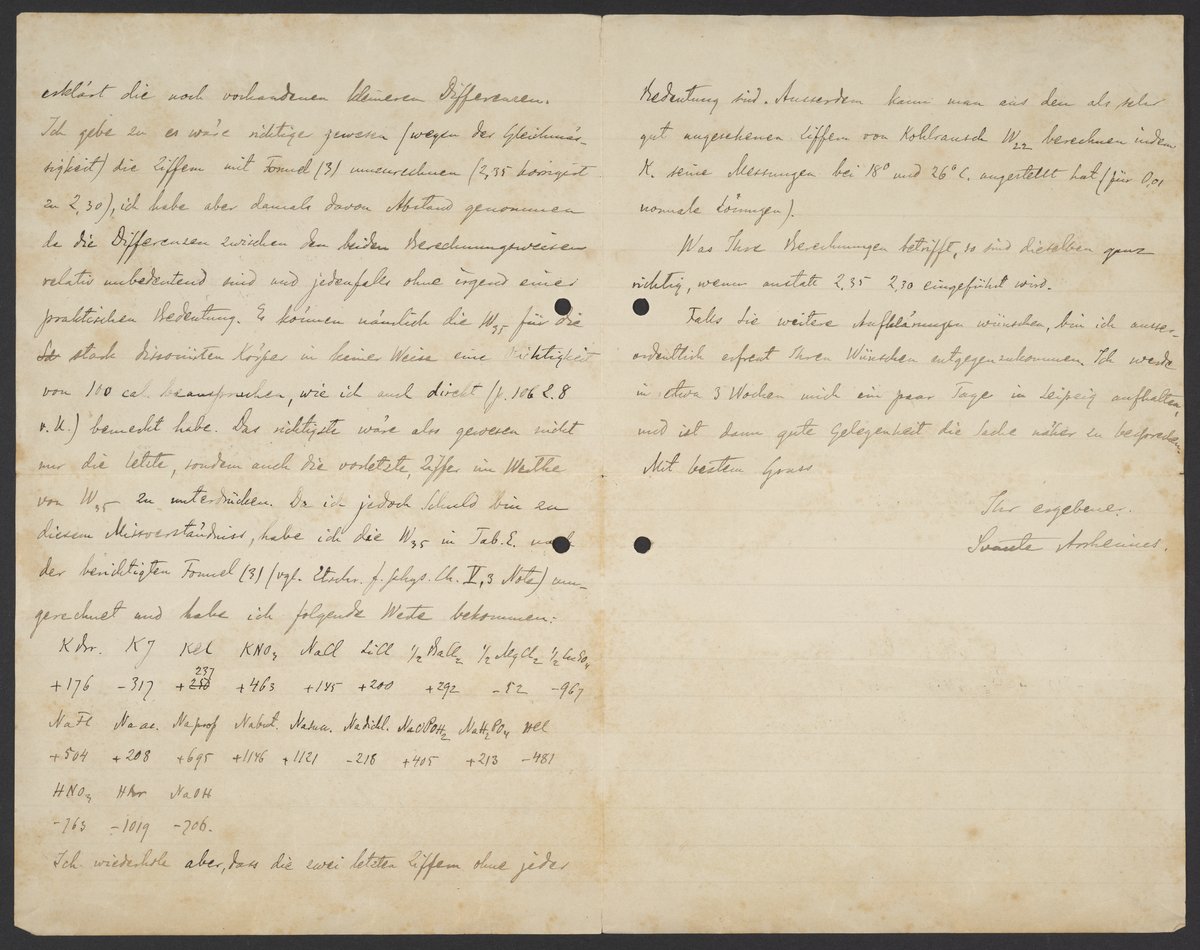 erklärt die noch vorhandenen kleineren Differenzen.
Ich gebe zu es wäre richtiger gewesen (wegen der Gleichmäs-
sigkeit) die Ziffern mit Formel (3) umzurechnen (2,35 korrigirt
zu 2,30), ich habe aber damals davon Abstand genommen
da die Differenzen zwischen den beiden Berechnungsweisen
relativ unbedeutend sind und jedenfalls ohne irgend einer
praktischen Bedeutung. Es können nämlich die W₃₅ für die
stark dissociirten Körper in keiner Weise eine Richtigkeit
von 100 cal. beanspruchen, wie ich auch direkt (p. 106 Z. 8
v. U.) bemerkt habe. Das richtigste wäre also gewesen nicht
nur die letzte, sondern auch die vorletzte, Ziffer im Werthe
von W₃₅ zu unterdrücken. Da ich jedoch Schuld bin zu
diesem Missverständniss, habe ich die W₃₅ in Tab. E. nach
der berichtigten Formel (3) (vgl. Ztschr. f. phys. Ch. V, 3 Note) um-
gerechnet und habe ich folgende Werte bekommen:
KBr. KJ KCl KNO₃ NaCl LiCl ½ BaCl₂ ½ MgCl₂ ½ CuSO₄
237
+176 -317 +250 +463 +185 +200 +292 -52 -967
NaFl Naac. Naprop Nabut. Nasucc. Nadichl. NaOPOH₂ NaH₂PO₄ HCl
+504 +208 +695 +1146 +1121 -218 +405 +213 -481
HNO₃ HBr NaOH
-763 -1019 -706.
Ich wiederhole aber, dass die zwei letzten Ziffern ohne jeder
Bedeutung sind. Ausserdem kann man aus den als sehr
gut angesehenen Ziffern von Kohlrausch W₂₂ berechnen indem
K. seine Messungen bei 18° und 26° C. angestellt hat (für 0,01
normale Lösungen).
Was Ihre Berechnungen betrifft, so sind dieselben ganz
richtig, wenn anstatt 2,35 2,30 eingeführt wird.
Falls Sie weitere Aufklärungen wünschen, bin ich ausser-
ordentlich erfreut Ihren Wünschen entgegenzukommen. Ich werde
in etwa 3 Wochen mich ein paar Tage in Leipzig aufhalten,
und ist dann gute Gelegenheit die Sache näher zu besprechen.
Mit bestem Gruss
Ihr ergebener.
Svante Arrhenius.